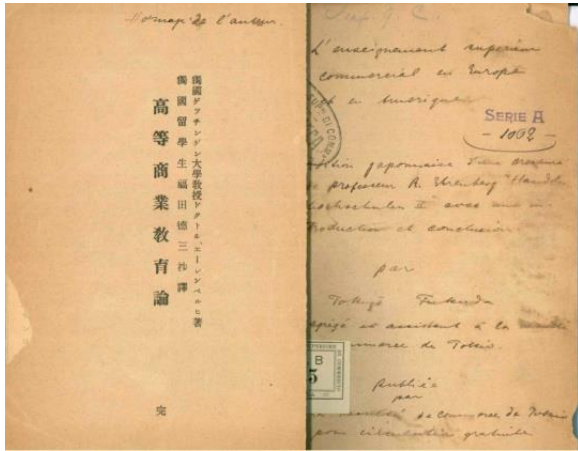 Hommage de l'auteur.
獨國ドクチンゲン大學教授ドクトル、エーレンベルヒ著
獨國留學生福田德三抄譯
高等商業敎育論
完
L'enseignement supérieur
commercial en Europe
et en Amerique
SERIE A
- 1002 -
japonaise d'une brochure
professeur R. Ehrenberg "Handels
hochschulen II" avec une in-
troduction et conclusion
par
Tokuzo Fukuda
et assistant à la
commerce de Tokio.
publiée
par
de commerce de Tokio
pour circulation gratuite
B
5